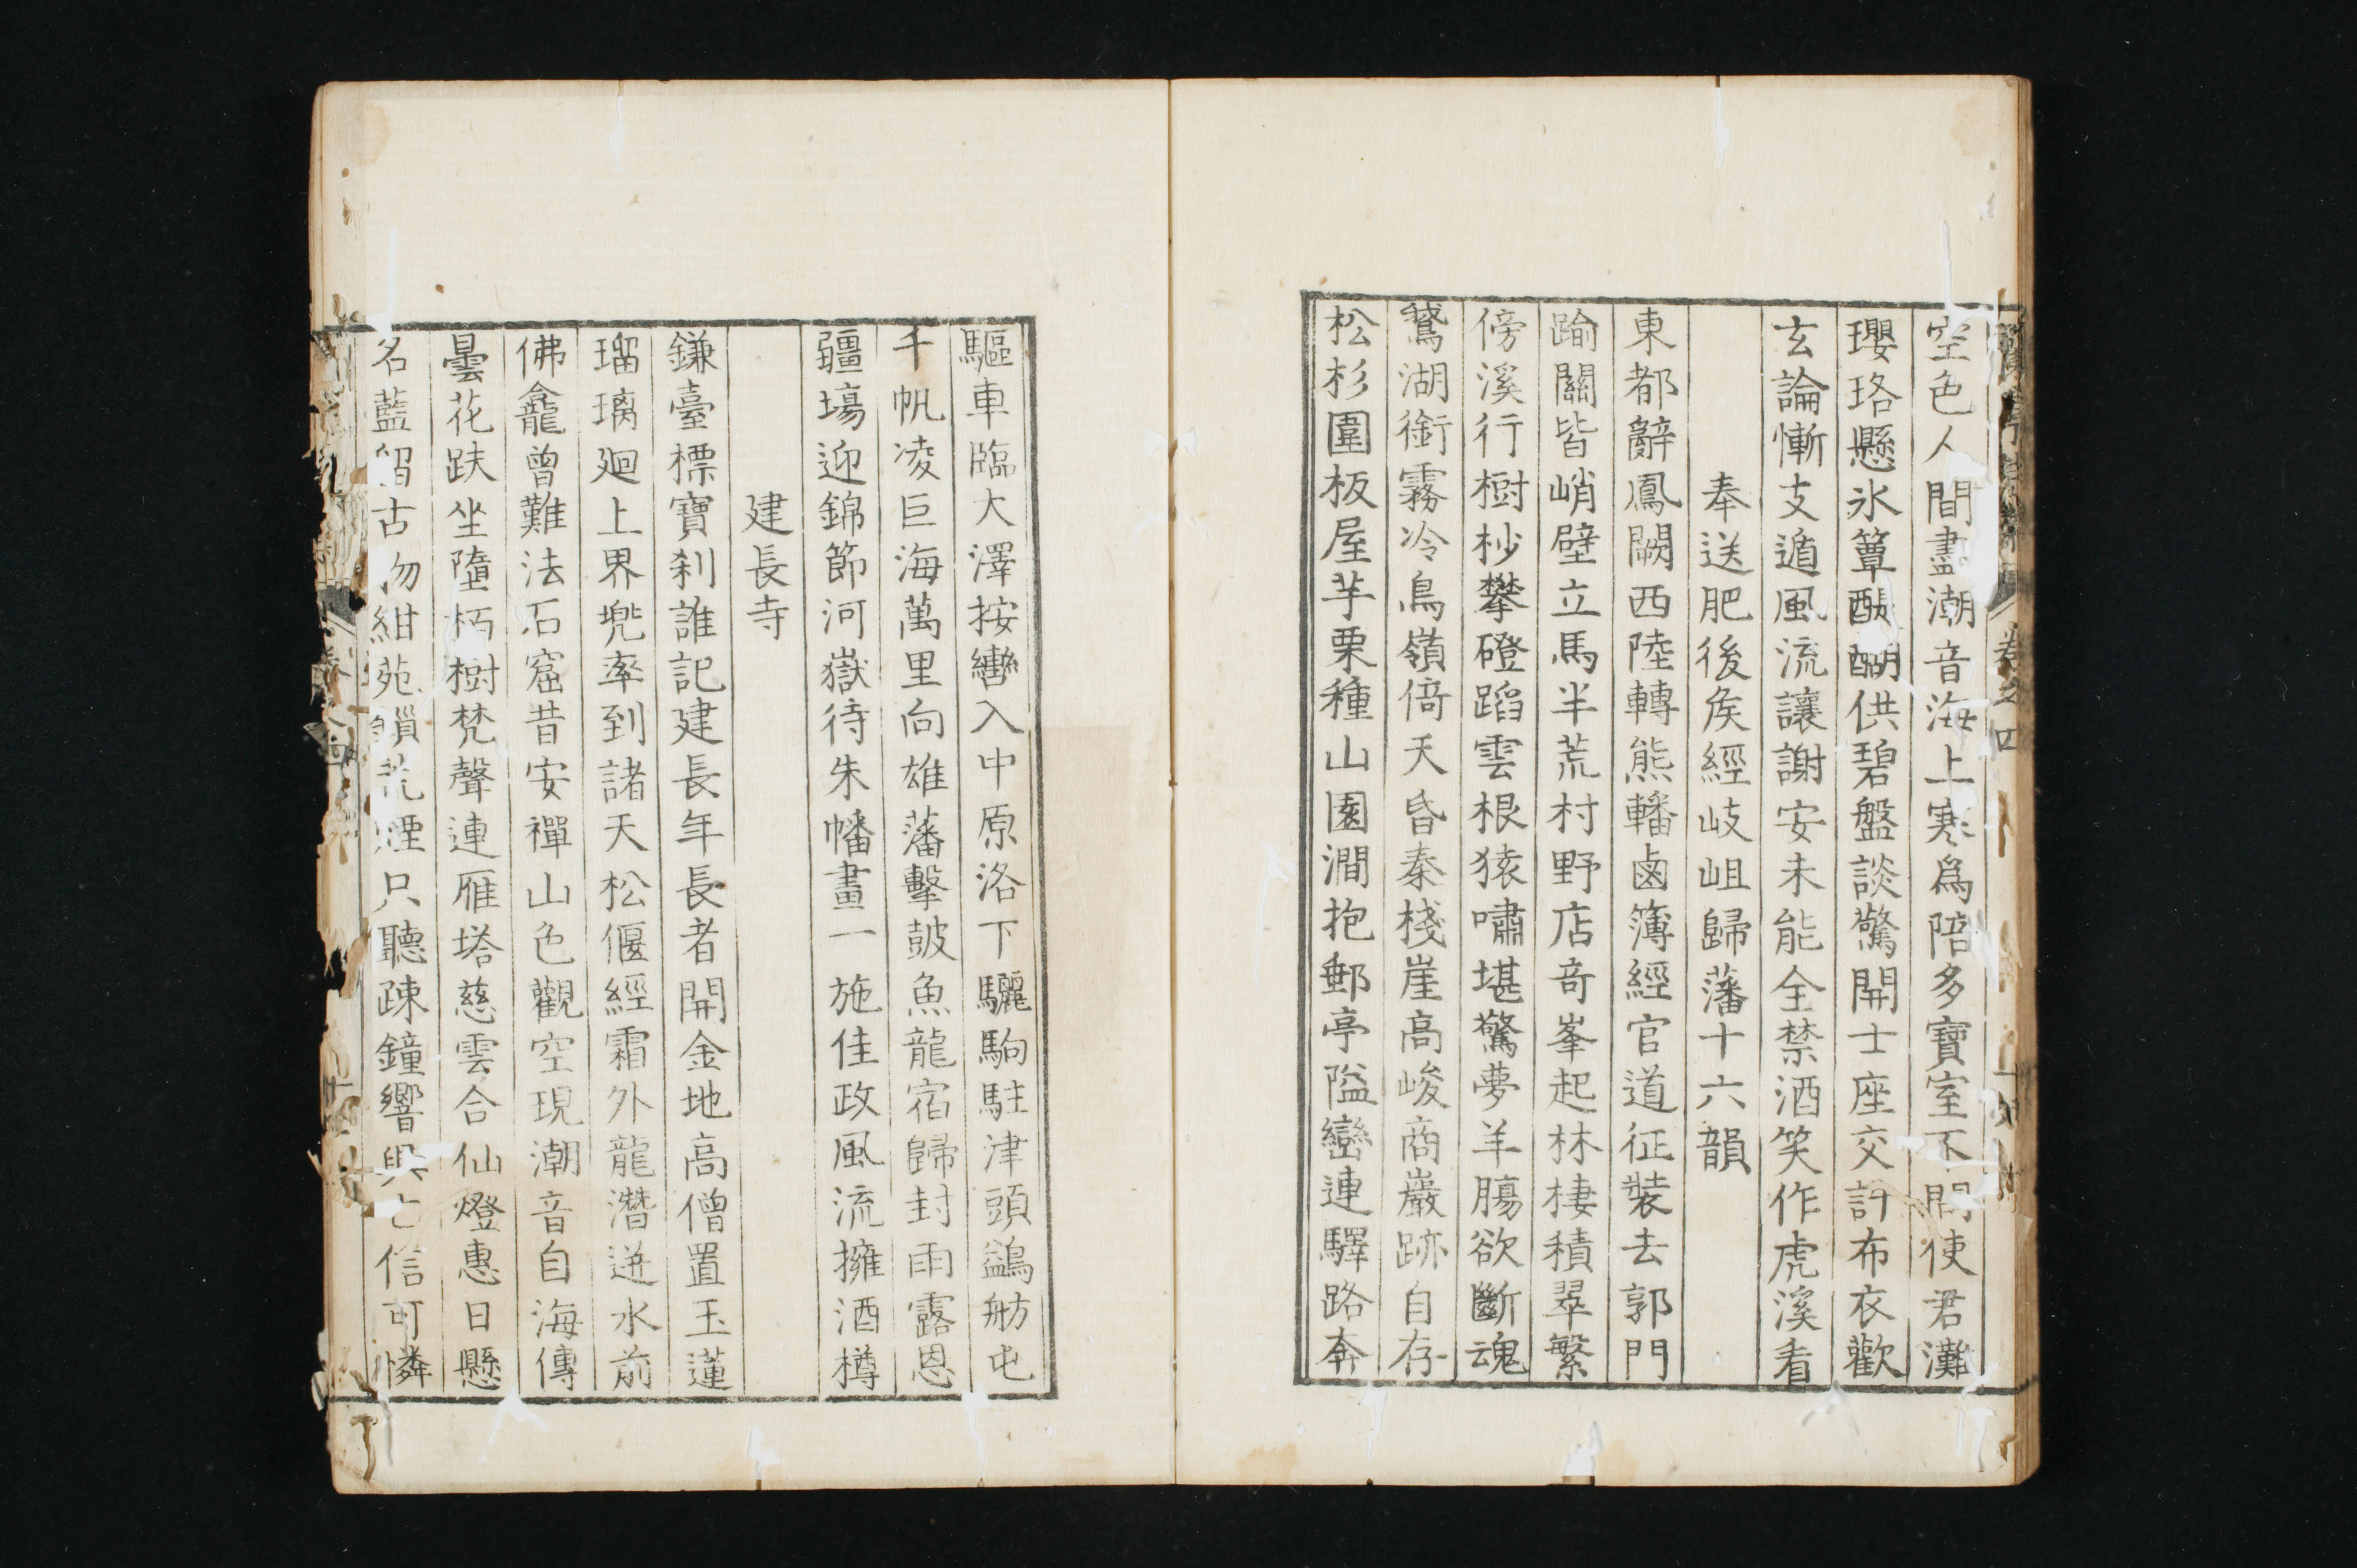 空色人間盡潮音海上寒爲陪多寶室不問使君灘
瓔珞懸氷簟醍醐供碧盤談驚開士座交許布衣歡
玄論慚支遁風流讓謝安未能全禁酒笑作虎溪看
奉送肥後矦經岐岨歸藩十六韻
東都辭鳳闕西陸轉熊轓鹵簿經官道征裝去郭門
踰關皆峭壁立馬半荒村野店奇峯起林棲積翠繁
傍溪行樹杪攀磴蹈雲根猿嘯堪驚夢羊膓欲斷魂
鵞湖銜霧冷鳥嶺倚天昏秦棧崖高峻商巖跡自存
松杉圍板屋芋栗種山園澗抱郵亭隘巒連驛路奔
卷之四
驅車臨大澤按轡入中原洛下驪駒駐津頭鷁舫屯
千帆凌巨海萬里向雄藩擊鼓魚龍宿歸封雨露恩
疆場迎錦節河嶽待朱幡畫一施佳政風流擁酒樽
建長寺
鎌臺標寶刹誰記建長年長者開金地高僧置玉蓮
瑠璃廻上界兠率到諸天松偃經霜外龍潛迸水前
佛龕曾難法石窟昔安禪山色觀空現潮音自海傳
曇花趺坐墮栢樹梵聲連雁塔慈雲合仙燈惠日懸
名藍留古物紺苑鎖荒煙只聽踈鐘響興亡信可憐